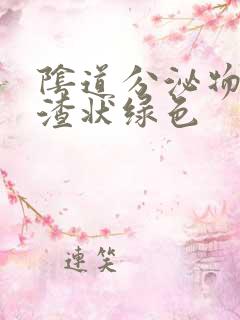 陰道分泌物
渣状绿色
連笑